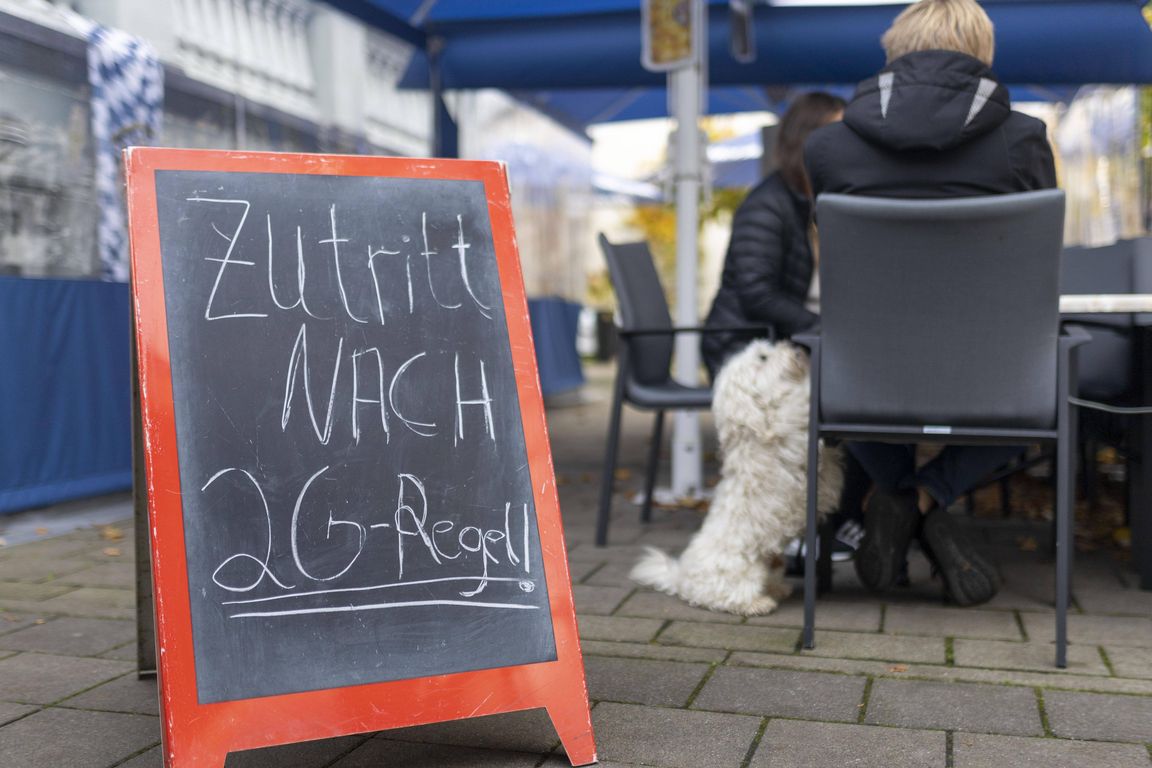 Zutritt
NACH
2G-Regel!